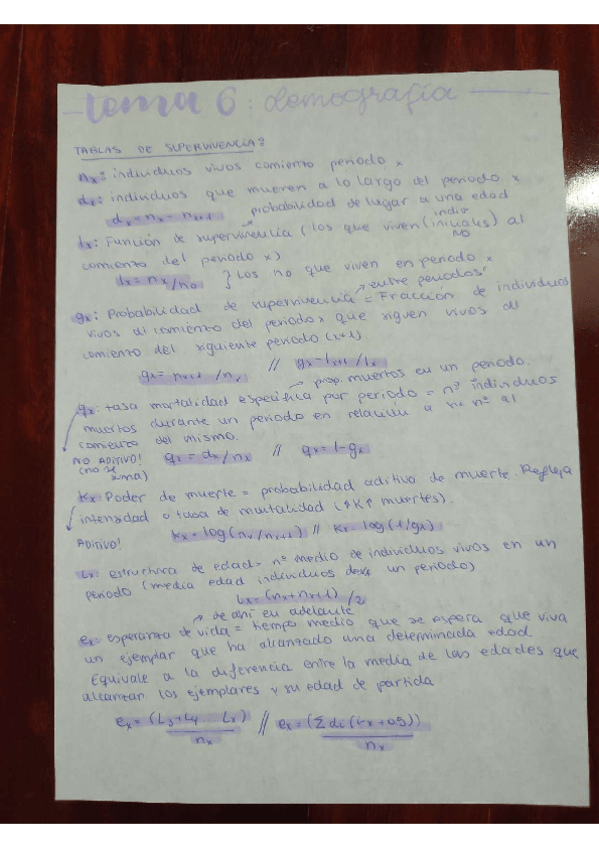 tema 6: demografía
TABLAS DE SUPERVIVENCIA:
nx: individuos vivos comienzo periodo x
dx: individuos que mueren a lo largo del periodo x
dx = nx - nx+1 → probabilidad de lugar a una edad
lx: Función de supervivencia (los que viven (indiv iniciales) al
NO
comienzo del periodo x)
lx = nx/n0 } Los no que viven en periodo x
→ entre periodos!
gx: Probabilidad de supervivencia = Fracción de individuos
vivos al comienzo del periodo x que siguen vivos al
comienzo del siguiente periodo (x+1)
gx = nx+1/nx // gx = lx+1/lx
→ prop. muertos en un periodo.
qx: tasa mortalidad específica por periodo = nº individuos
muertos durante un periodo en relación a nº al
comienzo del mismo.
NO ADITIVO!
(no se suma)
qx = dx/nx // qx = 1-gx
Kx: Poder de muerte = probabilidad aditivo de muerte. Refleja
intensidad o tasa de mortalidad (↑K↑ muertes).
ADITIVO!
Kx = log(nx/nx+1) // Kx = log(1/gx)
Lx: estructura de edad = nº medio de individuos vivos en un
periodo (media edad individuos un periodo)
Lx = (nx+nx+1)/2
→ de ahí en adelante
ex: esperanza de vida = tiempo medio que se espera que viva
un ejemplar que ha alcanzado una determinada edad
Equivale a la diferencia entre la media de las edades que
alcanzan los ejemplares y su edad de partida
ex = (L3+L4 ... Lx) / nx // ex = (Σ di (i-x+0,5)) / nx